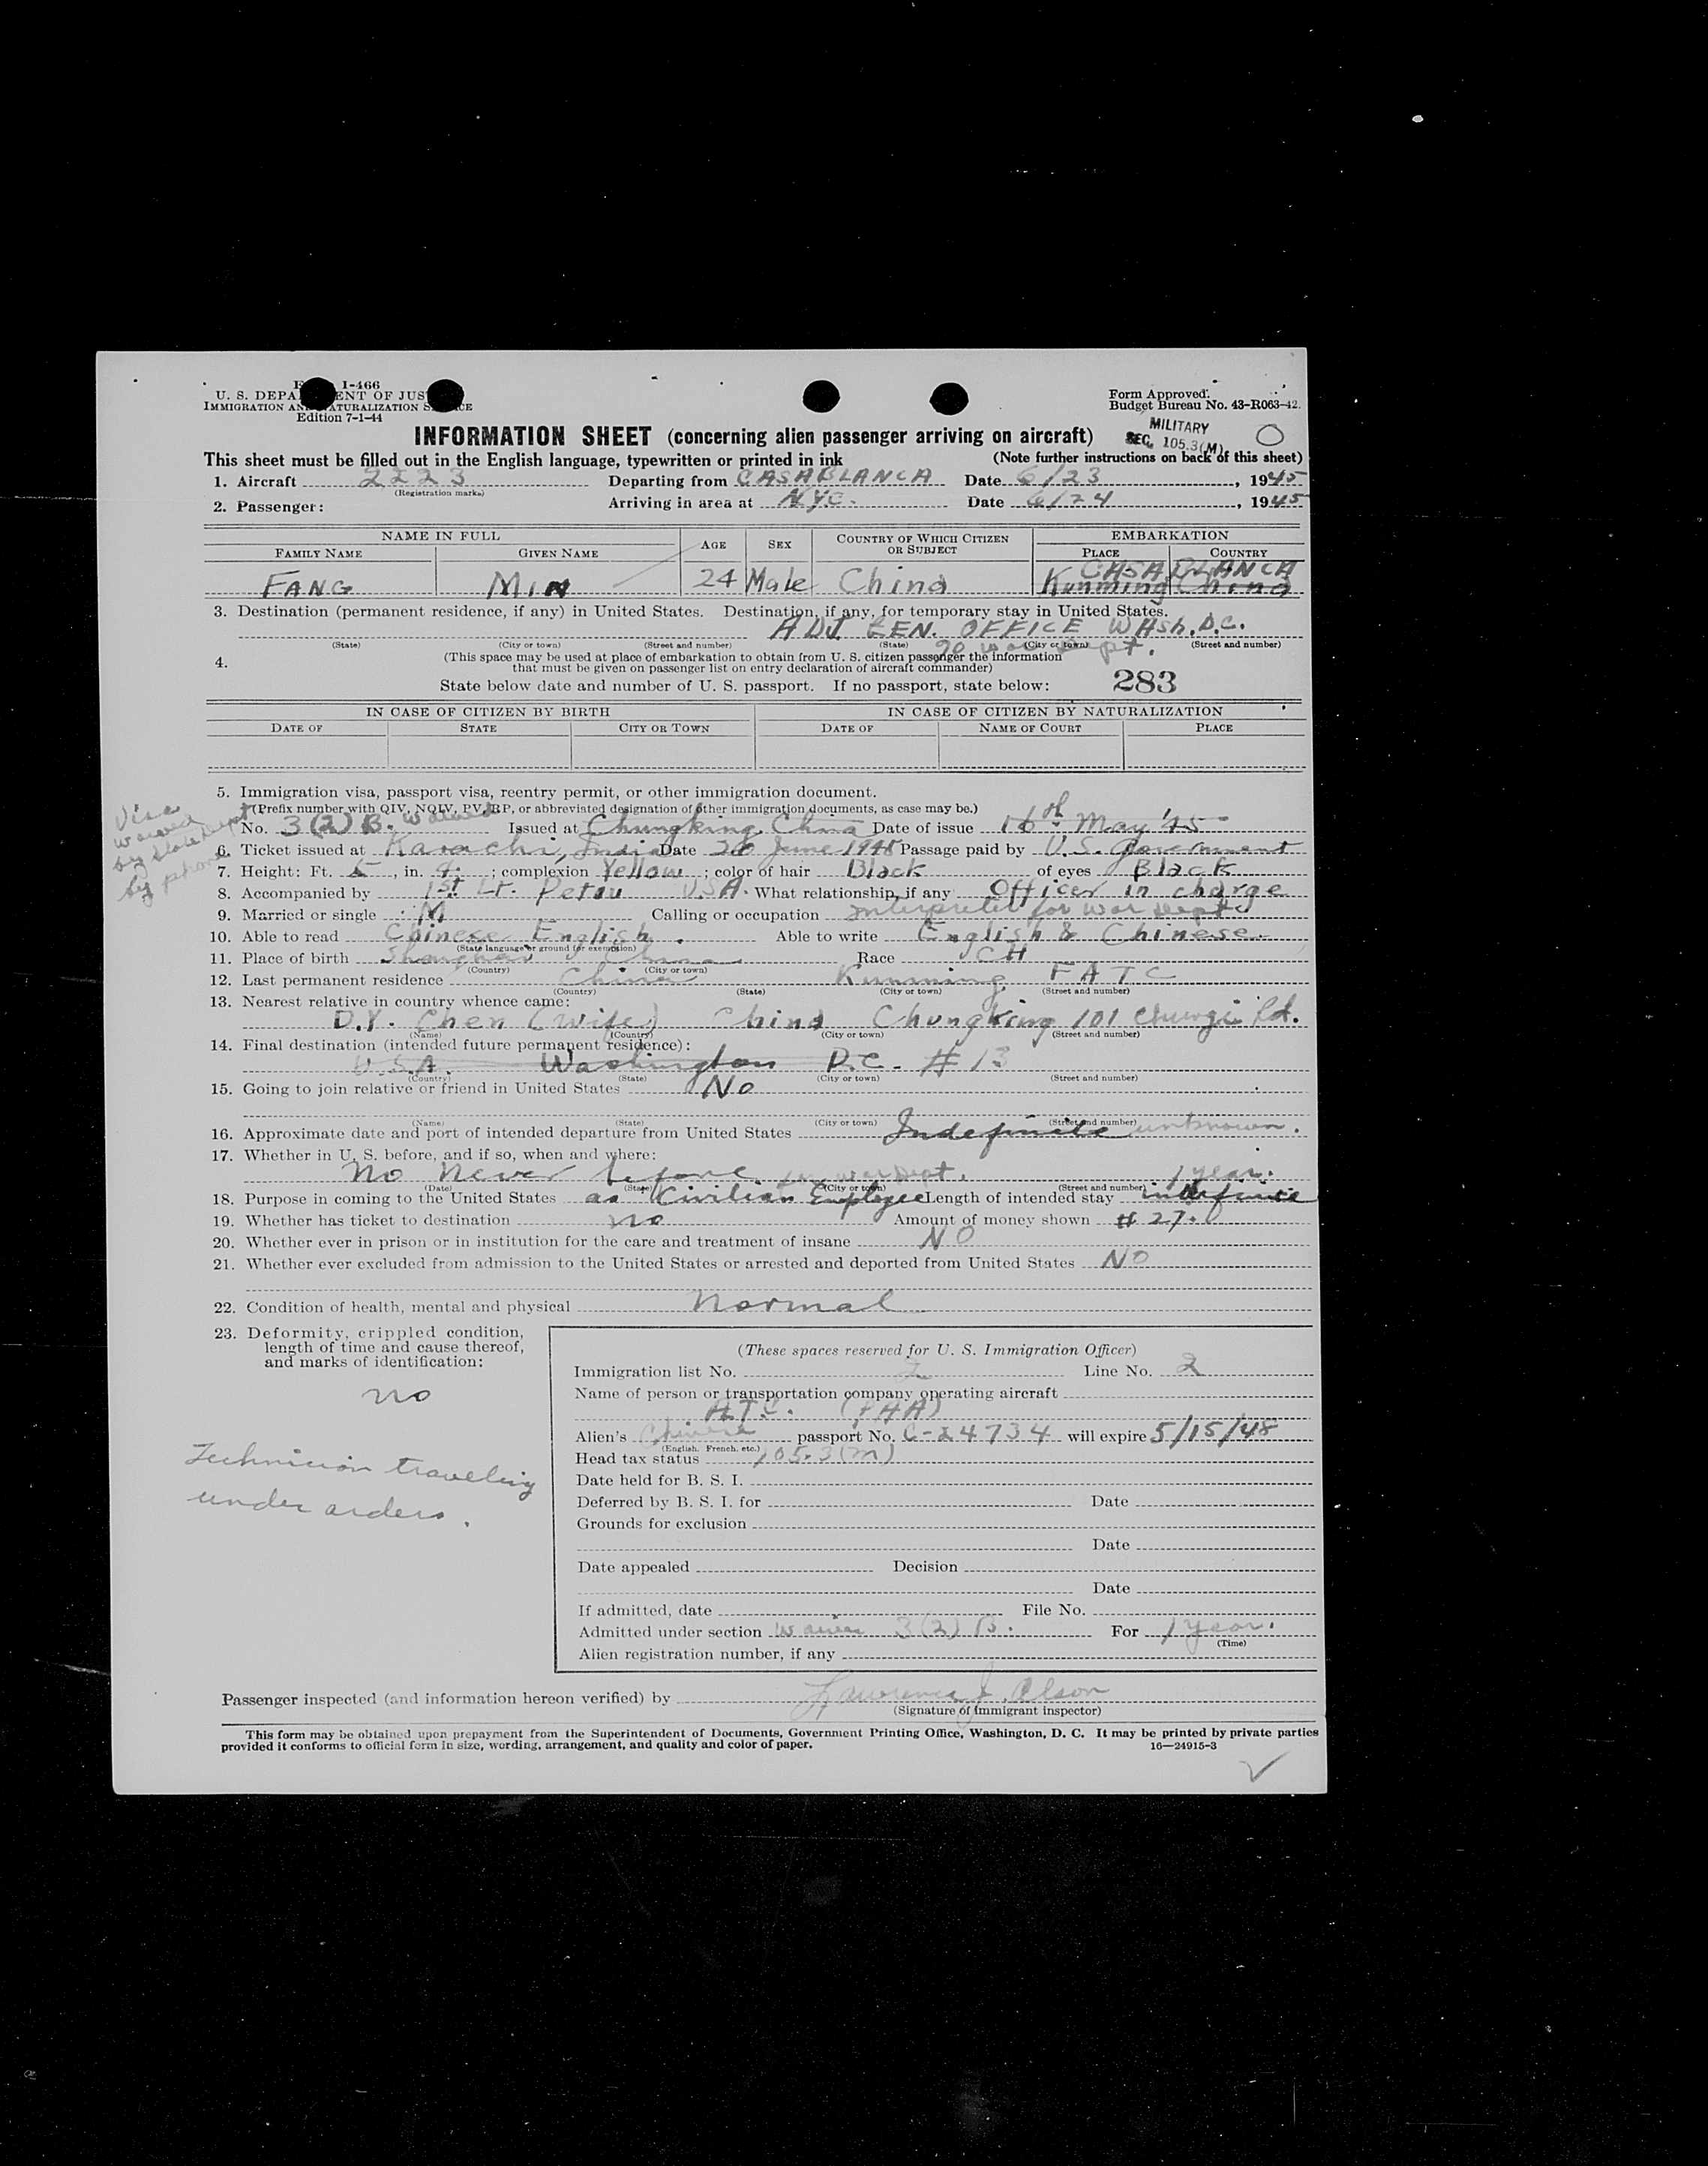 Form I-466
U. S. DEPARTMENT OF JUSTICE
IMMIGRATION AND NATURALIZATION SERVICE
Edition 7-1-44
Form Approved.
Budget Bureau No. 43-R063-42.
INFORMATION SHEET (concerning alien passenger arriving on aircraft)
MILITARY
SEC. 105.3(M)
This sheet must be filled out in the English language, typewritten or printed in ink (Note further instructions on back of this sheet)
1. Aircraft 2223 Departing from CASABLANCA Date 6/23, 1945
(Registration marks)
2. Passenger: Arriving in area at N.Y.C. Date 6/24, 1945
NAME IN FULL AGE SEX COUNTRY OF WHICH CITIZEN OR SUBJECT EMBARKATION
FAMILY NAME GIVEN NAME PLACE COUNTRY
CASABLANCA
FANG MIN 24 Male China Kunming China
3. Destination (permanent residence, if any) in United States. Destination, if any, for temporary stay in United States.
ADJ. GEN. OFFICE WASh. D.C.
(State) (City or town) (Street and number) (State) (City or town) (Street and number)
% War Dept.
4. (This space may be used at place of embarkation to obtain from U. S. citizen passenger the information
that must be given on passenger list on entry declaration of aircraft commander)
State below date and number of U. S. passport. If no passport, state below: 283
IN CASE OF CITIZEN BY BIRTH IN CASE OF CITIZEN BY NATURALIZATION
DATE OF STATE CITY OR TOWN DATE OF NAME OF COURT PLACE
5. Immigration visa, passport visa, reentry permit, or other immigration document.
(Prefix number with QIV, NQIV, PV, RP, or abbreviated designation of other immigration documents, as case may be.)
Visa
waived
by State Dept
by phone
No. 3(2) B. waived Issued at Chungking, China Date of issue 16th May '45
6. Ticket issued at Karachi, India Date 20 June 1945 Passage paid by U.S. Government
7. Height: Ft. 5, in. 4; complexion Yellow; color of hair Black of eyes Black
8. Accompanied by 1st Lt. U.S.A. What relationship, if any Officer in charge
9. Married or single M Calling or occupation Interpreter for War Dept
10. Able to read Chinese English. Able to write English & Chinese
(State language or ground for exemption)
11. Place of birth Shanghai China Race CH
(Country) (City or town)
12. Last permanent residence China Kunming FATC
(Country) (State) (City or town) (Street and number)
13. Nearest relative in country whence came:
D.Y. Chen (Wife) China Chungking 101 Rd.
(Name) (Country) (City or town) (Street and number)
14. Final destination (intended future permanent residence):
U.S.A. Washington D.C. # 13
(Country) (State) (City or town) (Street and number)
15. Going to join relative or friend in United States No
(Name) (State) (City or town) (Street and number)
16. Approximate date and port of intended departure from United States Indefinite unknown.
17. Whether in U. S. before, and if so, when and where:
No Never before for War Dept. 1 year.
(Date) (State) (City or town) (Street and number)
18. Purpose in coming to the United States as Civilian Employee Length of intended stay indefinite
19. Whether has ticket to destination no Amount of money shown $ 27.
20. Whether ever in prison or in institution for the care and treatment of insane NO
21. Whether ever excluded from admission to the United States or arrested and deported from United States NO
22. Condition of health, mental and physical Normal
23. Deformity, crippled condition,
length of time and cause thereof,
and marks of identification:
no
Technician traveling
under orders.
(These spaces reserved for U. S. Immigration Officer)
Immigration list No. 2 Line No. 2
Name of person or transportation company operating aircraft
A.T.C. (PAA)
Alien's Chinese passport No. C-24734 will expire 5/15/48
(English, French, etc.)
Head tax status 105.3(m)
Date held for B. S. I.
Deferred by B. S. I. for Date
Grounds for exclusion
Date
Date appealed Decision
Date
If admitted, date File No.
Admitted under section waiver 3(2) B. For 1 year.
(Time)
Alien registration number, if any
Passenger inspected (and information hereon verified) by Lawrence J. Olson
(Signature of immigrant inspector)
This form may be obtained upon prepayment from the Superintendent of Documents, Government Printing Office, Washington, D. C. It may be printed by private parties
provided it conforms to official form in size, wording, arrangement, and quality and color of paper. 16—24915-3